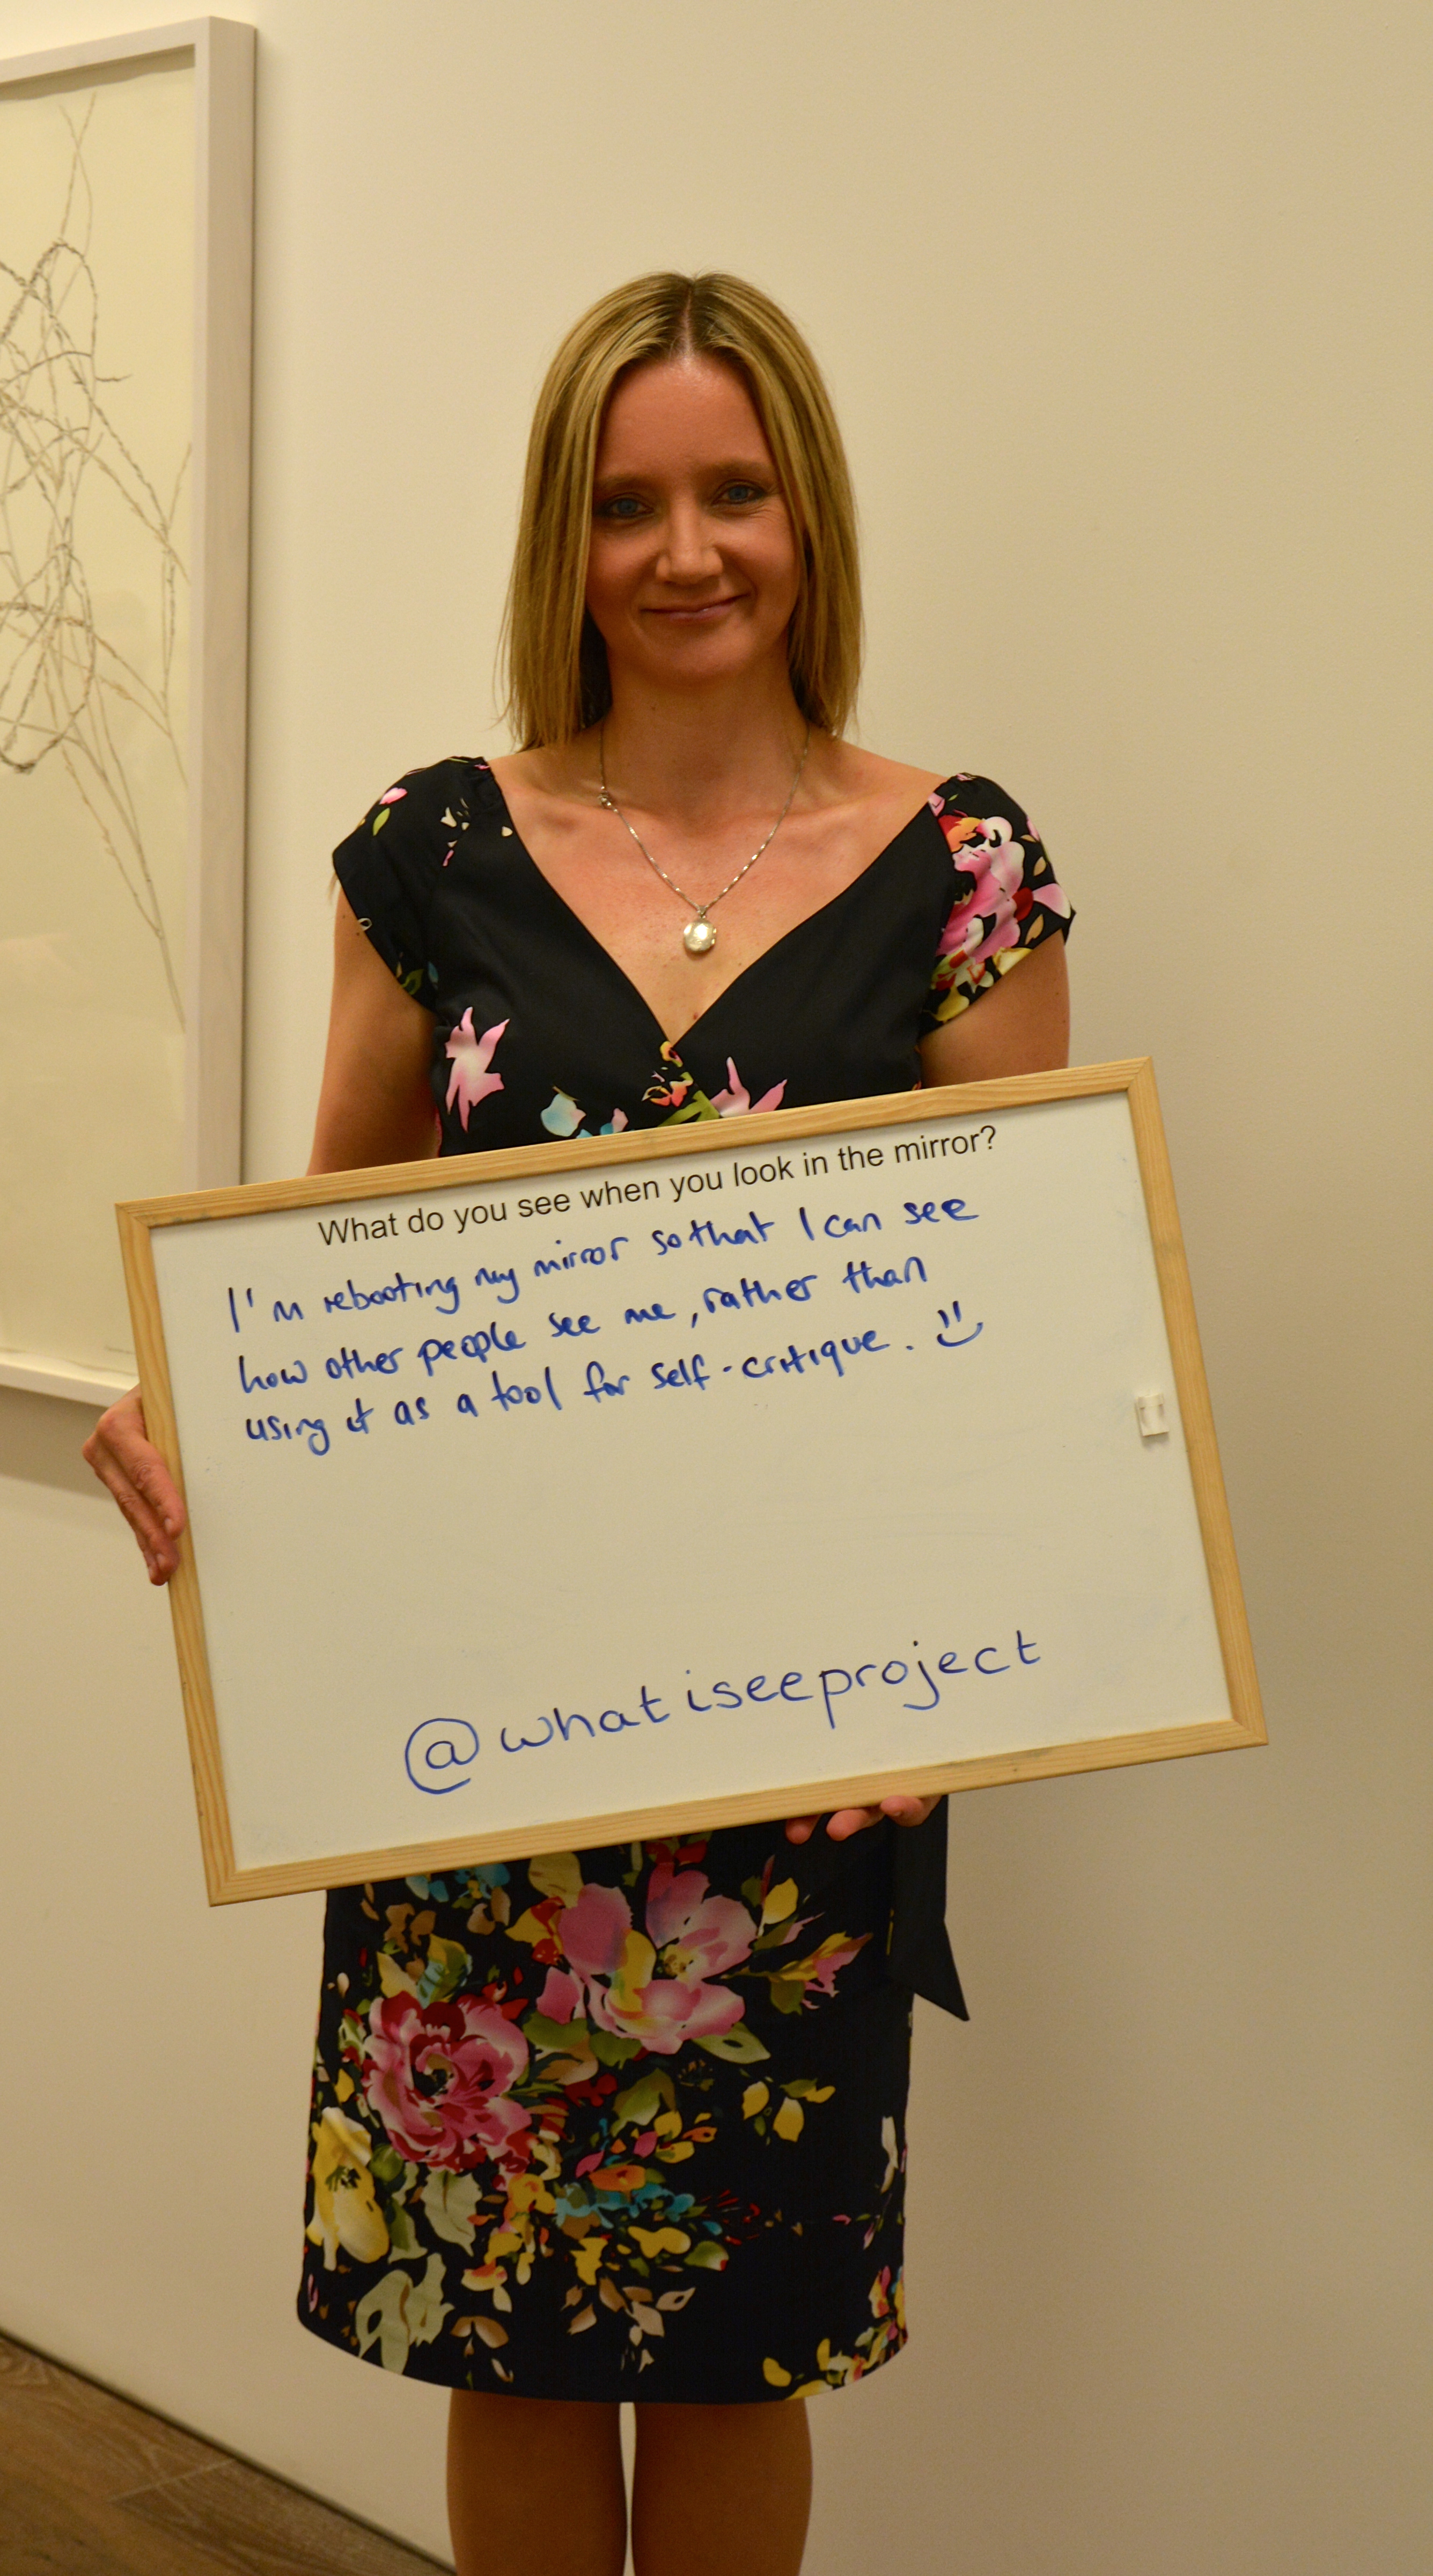 What do you see when you look in the mirror?
I'm rebooting my mirror so that I can see
how other people see me, rather than
using it as a tool for self-critique. :)
@whatiseeproject